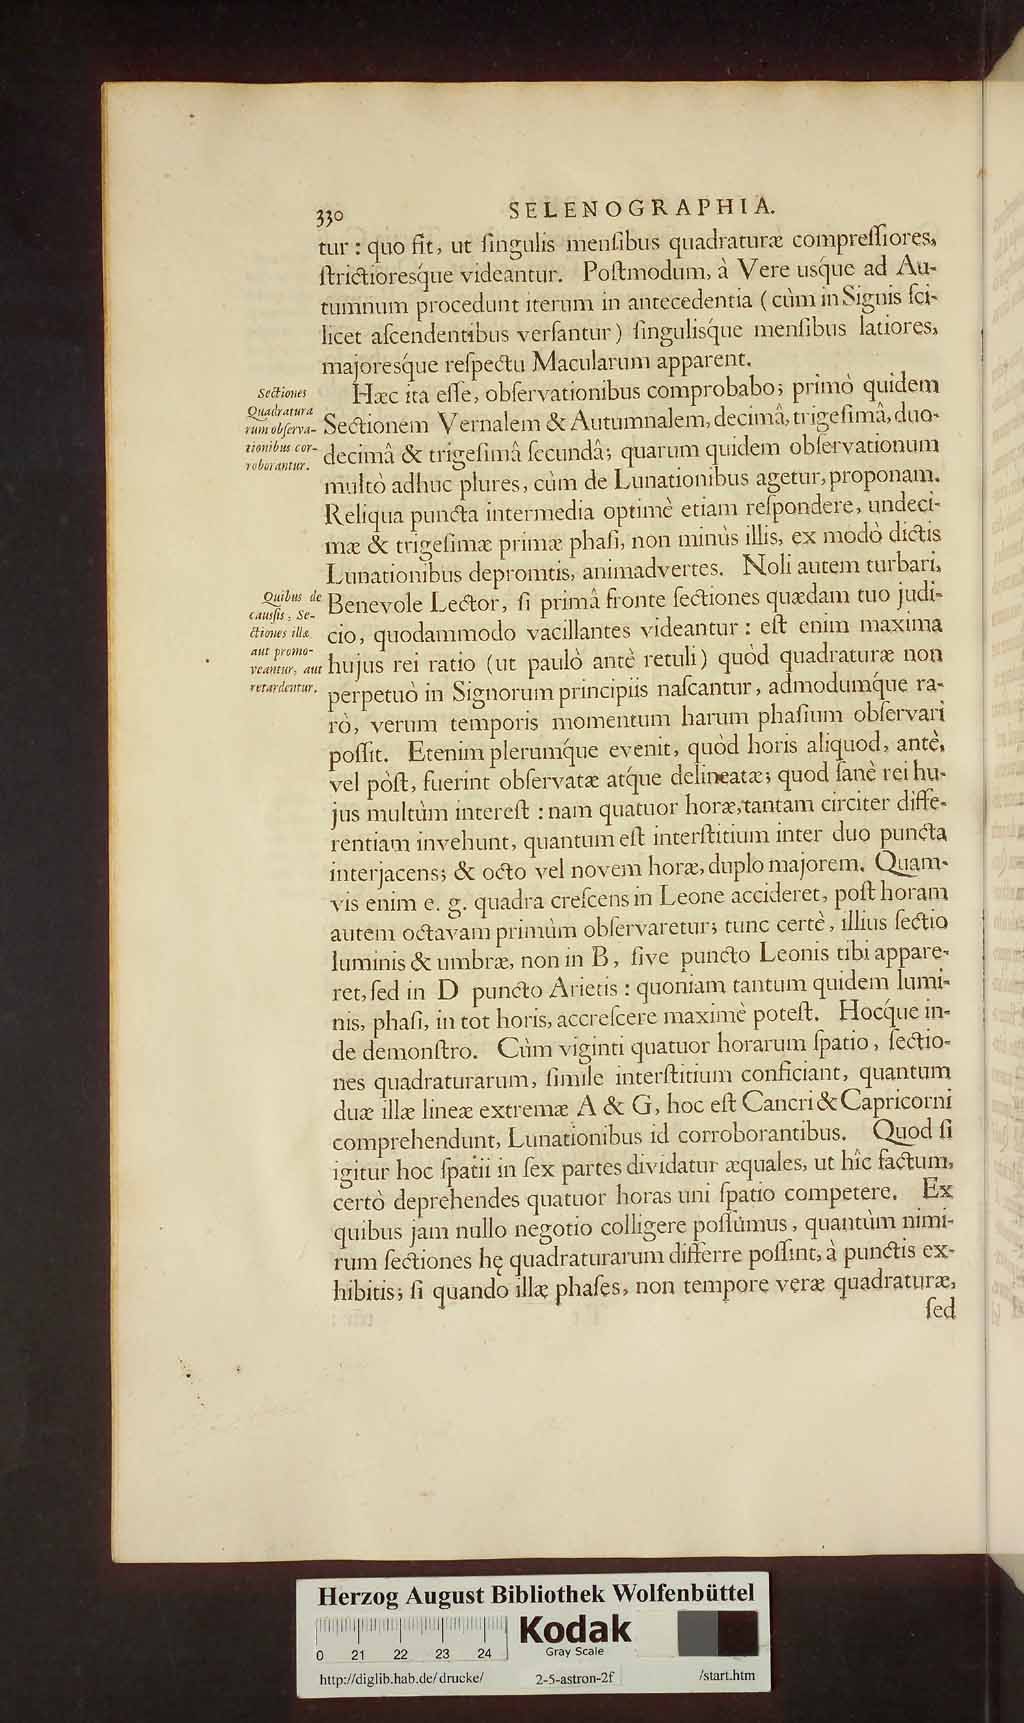 330 SELENOGRAPHIA.
tur : quo fit, ut ſingulis menſibus quadraturæ compreſſiores,
ſtrictioresq́ue videantur. Poſtmodum, à Vere usq́ue ad Au-
tumnum procedunt iterum in antecedentia (cùm in Signis ſci-
licet aſcendentibus verſantur) ſingulisq́ue menſibus latiores,
majoresq́ue reſpectu Macularum apparent.
Sectiones
Quadratura
rum obſerva-
tionibus cor-
roborantur.
Hæc ita eſſe, obſervationibus comprobabo; primò quidem
Sectionem Vernalem & Autumnalem, decimâ, trigeſimâ, duo-
decimâ & trigeſimâ ſecundâ; quarum quidem obſervationum
multò adhuc plures, cùm de Lunationibus agetur, proponam.
Reliqua puncta intermedia optimè etiam reſpondere, undeci-
mæ & trigeſimæ primæ phaſi, non minùs illis, ex modò dictis
Lunationibus depromtis, animadvertes. Noli autem turbari,
Quibus de
cauſſis, Se-
ctiones illæ
aut promo-
veantur, aut
retardentur.
Benevole Lector, ſi primâ fronte ſectiones quædam tuo judi-
cio, quodammodo vacillantes videantur : eſt enim maxima
hujus rei ratio (ut paulò antè retuli) quòd quadraturæ non
perpetuò in Signorum principiis naſcantur, admodumq́ue ra-
rò, verum temporis momentum harum phaſium obſervari
poſſit. Etenim plerumq́ue evenit, quòd horis aliquod, antè,
vel pòſt, fuerint obſervatæ atq́ue delineatæ; quod ſanè rei hu-
jus multùm intereſt : nam quatuor horæ, tantam circiter diffe-
rentiam invehunt, quantum eſt interſtitium inter duo puncta
interjacens; & octo vel novem horæ, duplo majorem. Quam-
vis enim e. g. quadra creſcens in Leone accideret, poſt horam
autem octavam primùm obſervaretur; tunc certè, illius ſectio
luminis & umbræ, non in B, ſive puncto Leonis tibi appare-
ret, ſed in D puncto Arietis : quoniam tantum quidem lumi-
nis, phaſi, in tot horis, accreſcere maximè poteſt. Hocq́ue in-
de demonſtro. Cùm viginti quatuor horarum ſpatio, ſectio-
nes quadraturarum, ſimile interſtitium conficiant, quantum
duæ illæ lineæ extremæ A & G, hoc eſt Cancri & Capricorni
comprehendunt, Lunationibus id corroborantibus. Quod ſi
igitur hoc ſpatii in ſex partes dividatur æquales, ut hîc factum,
certò deprehendes quatuor horas uni ſpatio competere. Ex
quibus jam nullo negotio colligere poſſumus, quantùm nimi-
rum ſectiones hę quadraturarum differre poſſint, à punctis ex-
hibitis; ſi quando illæ phaſes, non tempore veræ quadraturæ,
ſed
Herzog August Bibliothek Wolfenbüttel
Kodak
Gray Scale
0 21 22 23 24
http://diglib.hab.de/drucke/ 2-5-astron-2f /start.htm